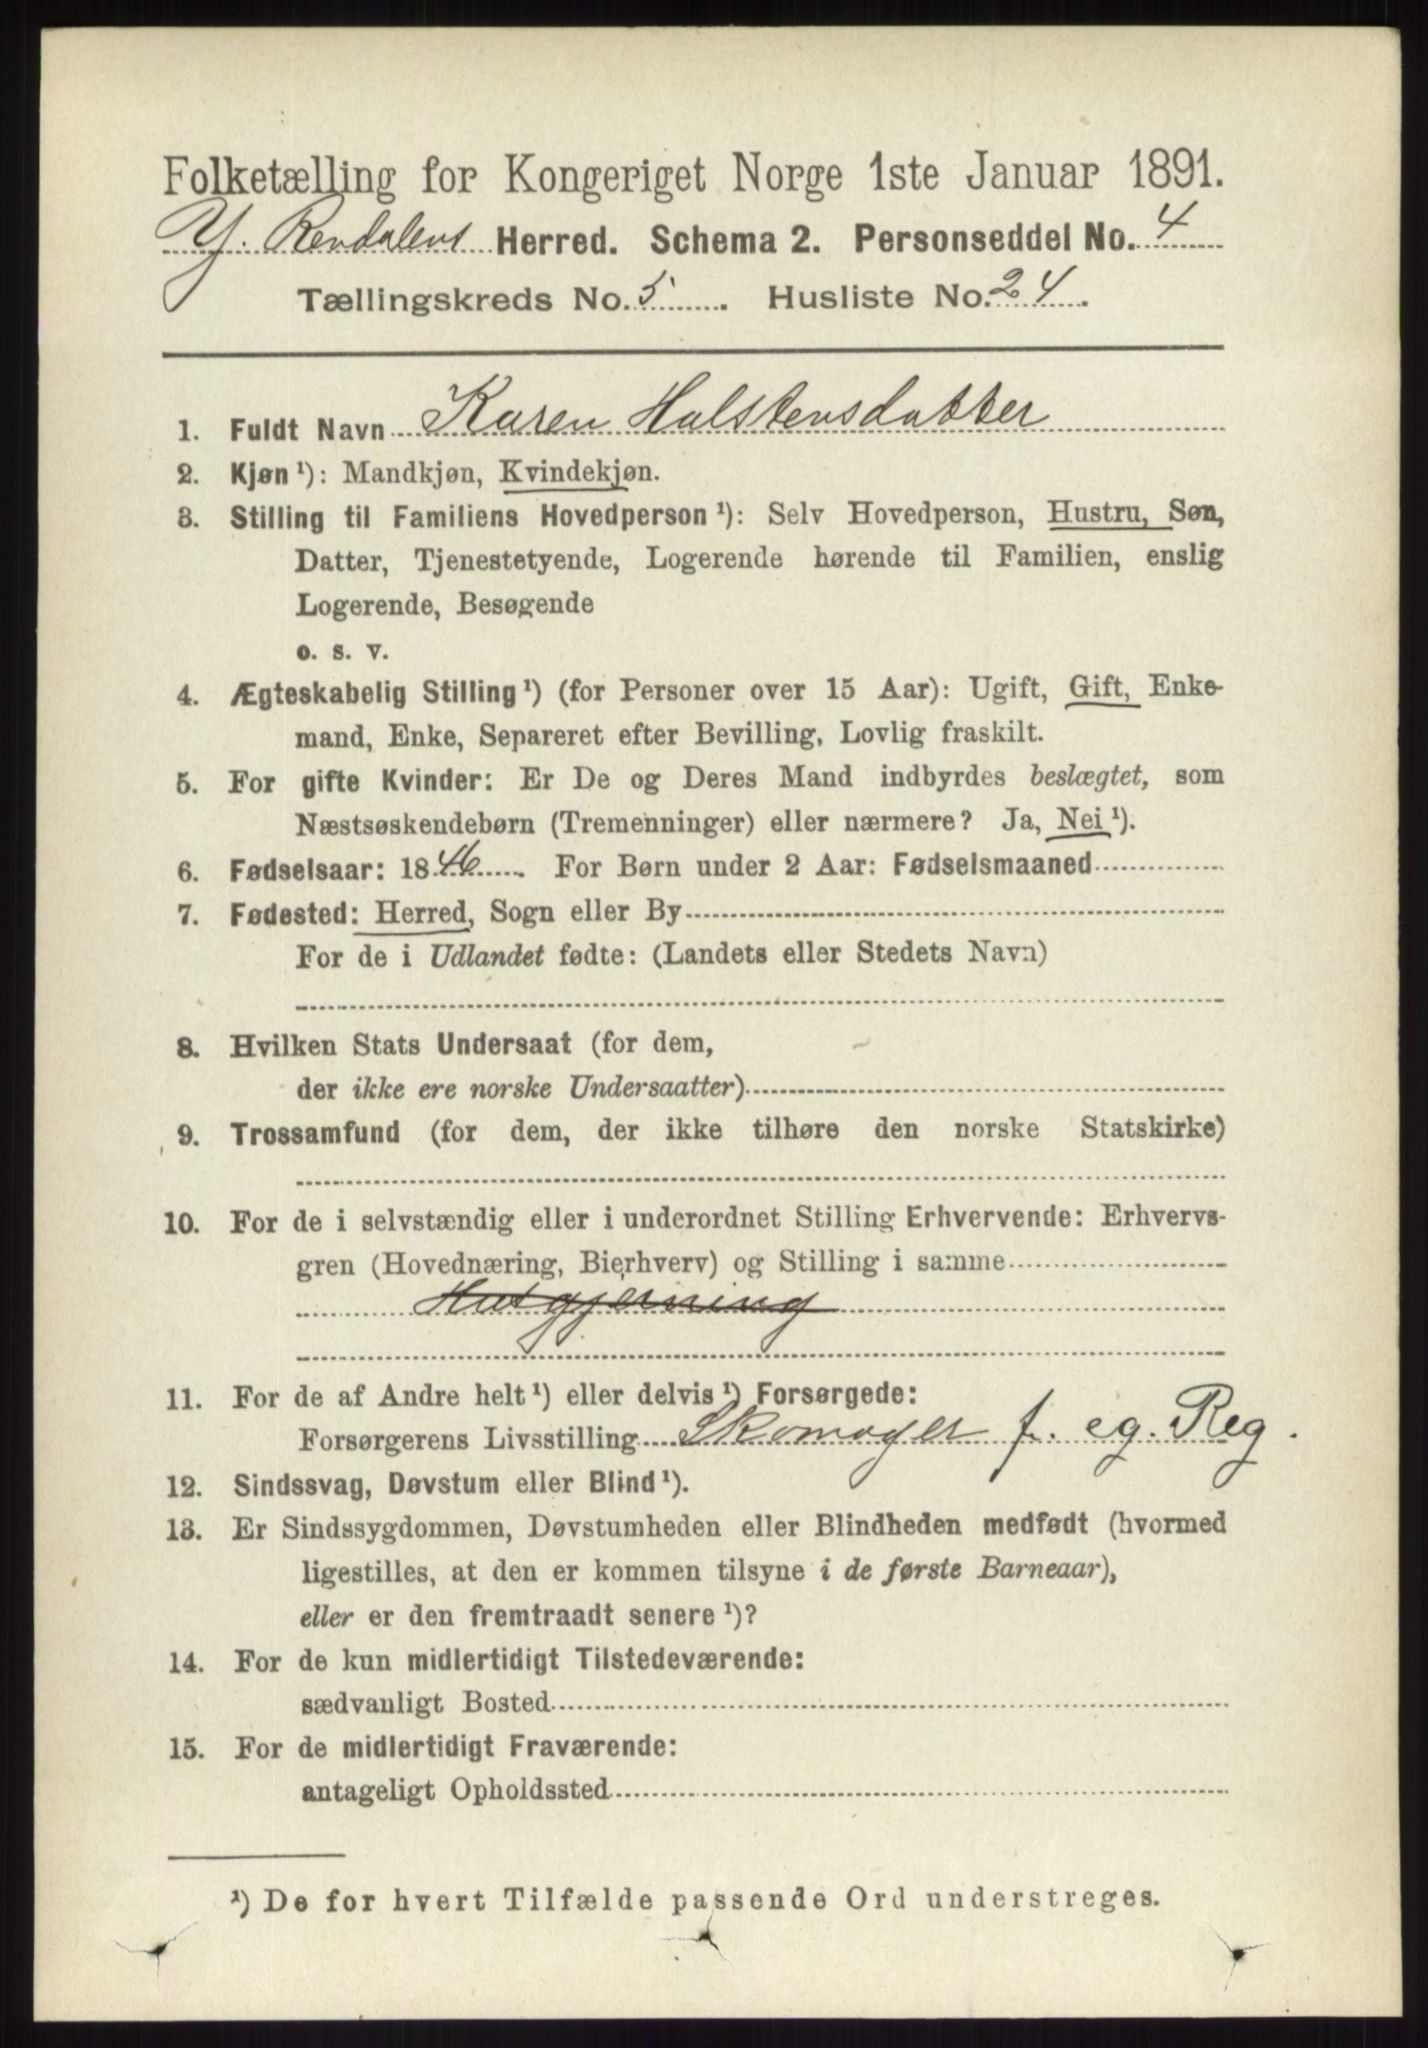 Folketælling for Kongeriget Norge 1ste Januar 1891.
Y. Rendalens Herred. Schema 2. Personseddel No. 4
Tællingskreds No. 5. Husliste No. 24.
1. Fuldt Navn Karen Halstensdatter
2. Kjøn¹): Mandkjøn, Kvindekjøn.
3. Stilling til Familiens Hovedperson¹): Selv Hovedperson, Hustru, Søn,
Datter, Tjenestetyende, Logerende hørende til Familien, enslig
Logerende, Besøgende
o. s. v.
4. Ægteskabelig Stilling¹) (for Personer over 15 Aar): Ugift, Gift, Enke-
mand, Enke, Separeret efter Bevilling, Lovlig fraskilt.
5. For gifte Kvinder: Er De og Deres Mand indbyrdes beslægtet, som
Næstsøskendebørn (Tremenninger) eller nærmere? Ja, Nei¹).
6. Fødselsaar: 1846. For Børn under 2 Aar: Fødselsmaaned
7. Fødested: Herred, Sogn eller By
For de i Udlandet fødte: (Landets eller Stedets Navn)
8. Hvilken Stats Undersaat (for dem,
der ikke ere norske Undersaatter)
9. Trossamfund (for dem, der ikke tilhøre den norske Statskirke)
10. For de i selvstændig eller i underordnet Stilling Erhvervende: Erhvervs-
gren (Hovednæring, Bierhverv) og Stilling i samme
Husgjerning
11. For de af Andre helt¹) eller delvis¹) Forsørgede:
Forsørgerens Livsstilling Skomager f. eg. Reg.
12. Sindssvag, Døvstum eller Blind¹).
13. Er Sindssygdommen, Døvstumheden eller Blindheden medfødt (hvormed
ligestilles, at den er kommen tilsyne i de første Barneaar),
eller er den fremtraadt senere¹)?
14. For de kun midlertidigt Tilstedeværende:
sædvanligt Bosted
15. For de midlertidigt Fraværende:
antageligt Opholdssted
¹) De for hvert Tilfælde passende Ord understreges.